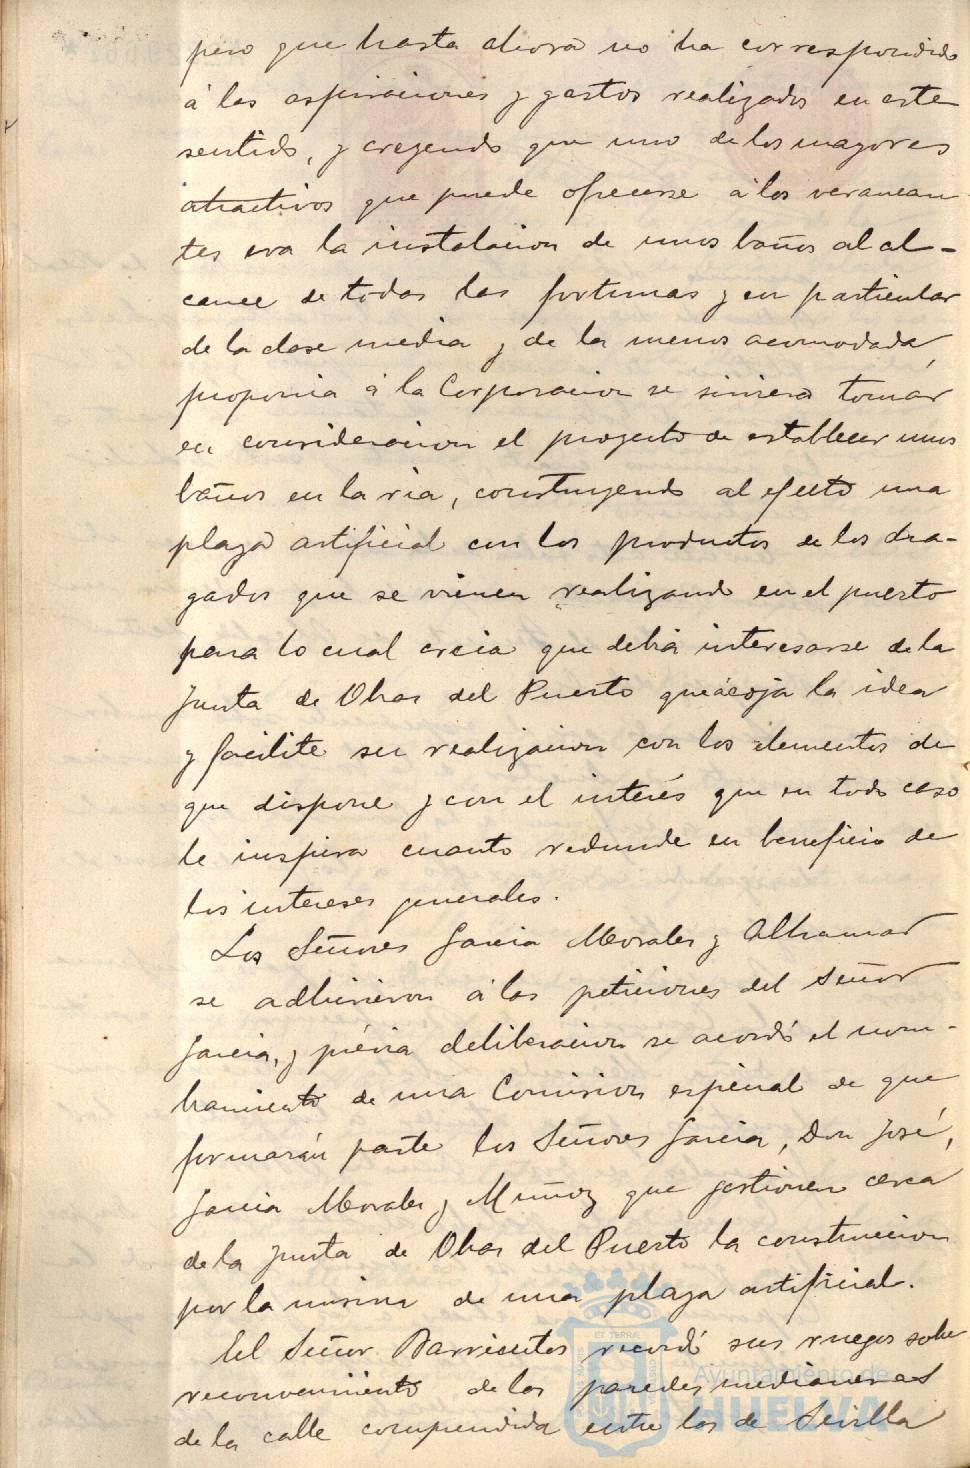 pero que hasta ahora no ha correspondido
á las aspiraciones y gastos realizados en este
sentido, y creyendo que uno de los mayores
atractivos que puede ofrecerse á los veranean
tes era la instalacion de unos baños al al-
cance de todas las fortunas y en particular
de la clase media y de la menos acomodada,
proponia á la Corporacion se sirviera tomar
en consideracion el proyecto de establecer unos
baños en la ria, construyendo al efecto una
playa artificial con los productos de los dra-
gados que se vienen realizando en el puerto
para lo cual creia que debia interesarse de la
Junta de Obras del Puerto que acoja la idea
y facilite su realizacion con los elementos de
que dispone y con el interés que en todo caso
le inspira cuanto redunde en beneficio de
los intereses generales.
Los Señores Garcia Morales y Alhamar
se adhirieron á las peticiones del Señor
Garcia, y prévia deliberacion se acordó el nom-
bramiento de una Comision especial de que
formarán parte los Señores Garcia, Don José,
Garcia Morales y Muñoz que gestionen cerca
de la Junta de Obras del Puerto la construccion
por la misma de una playa artificial.
El Señor Barrientos recordó sus ruegos sobre
reconocimiento de las paredes medianeras
de la calle comprendida entre las de Sevilla
Ayuntamiento de
HUELVA